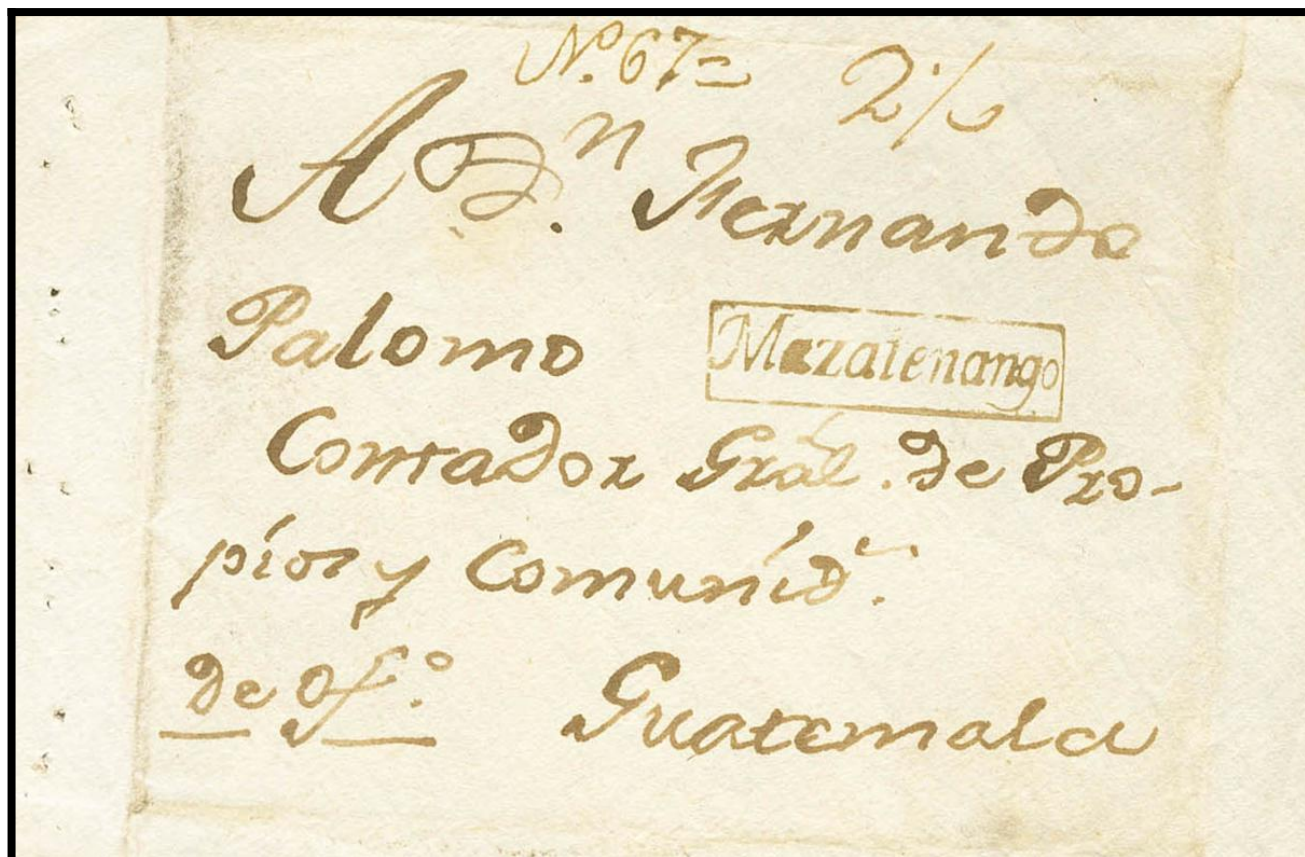 Nº. 67=
A Dⁿ. Fernando
Palomo
Mazatenango
Contador Grál. de Pro-
pios y Comunid.ˢ
de ofº.
Guatemala